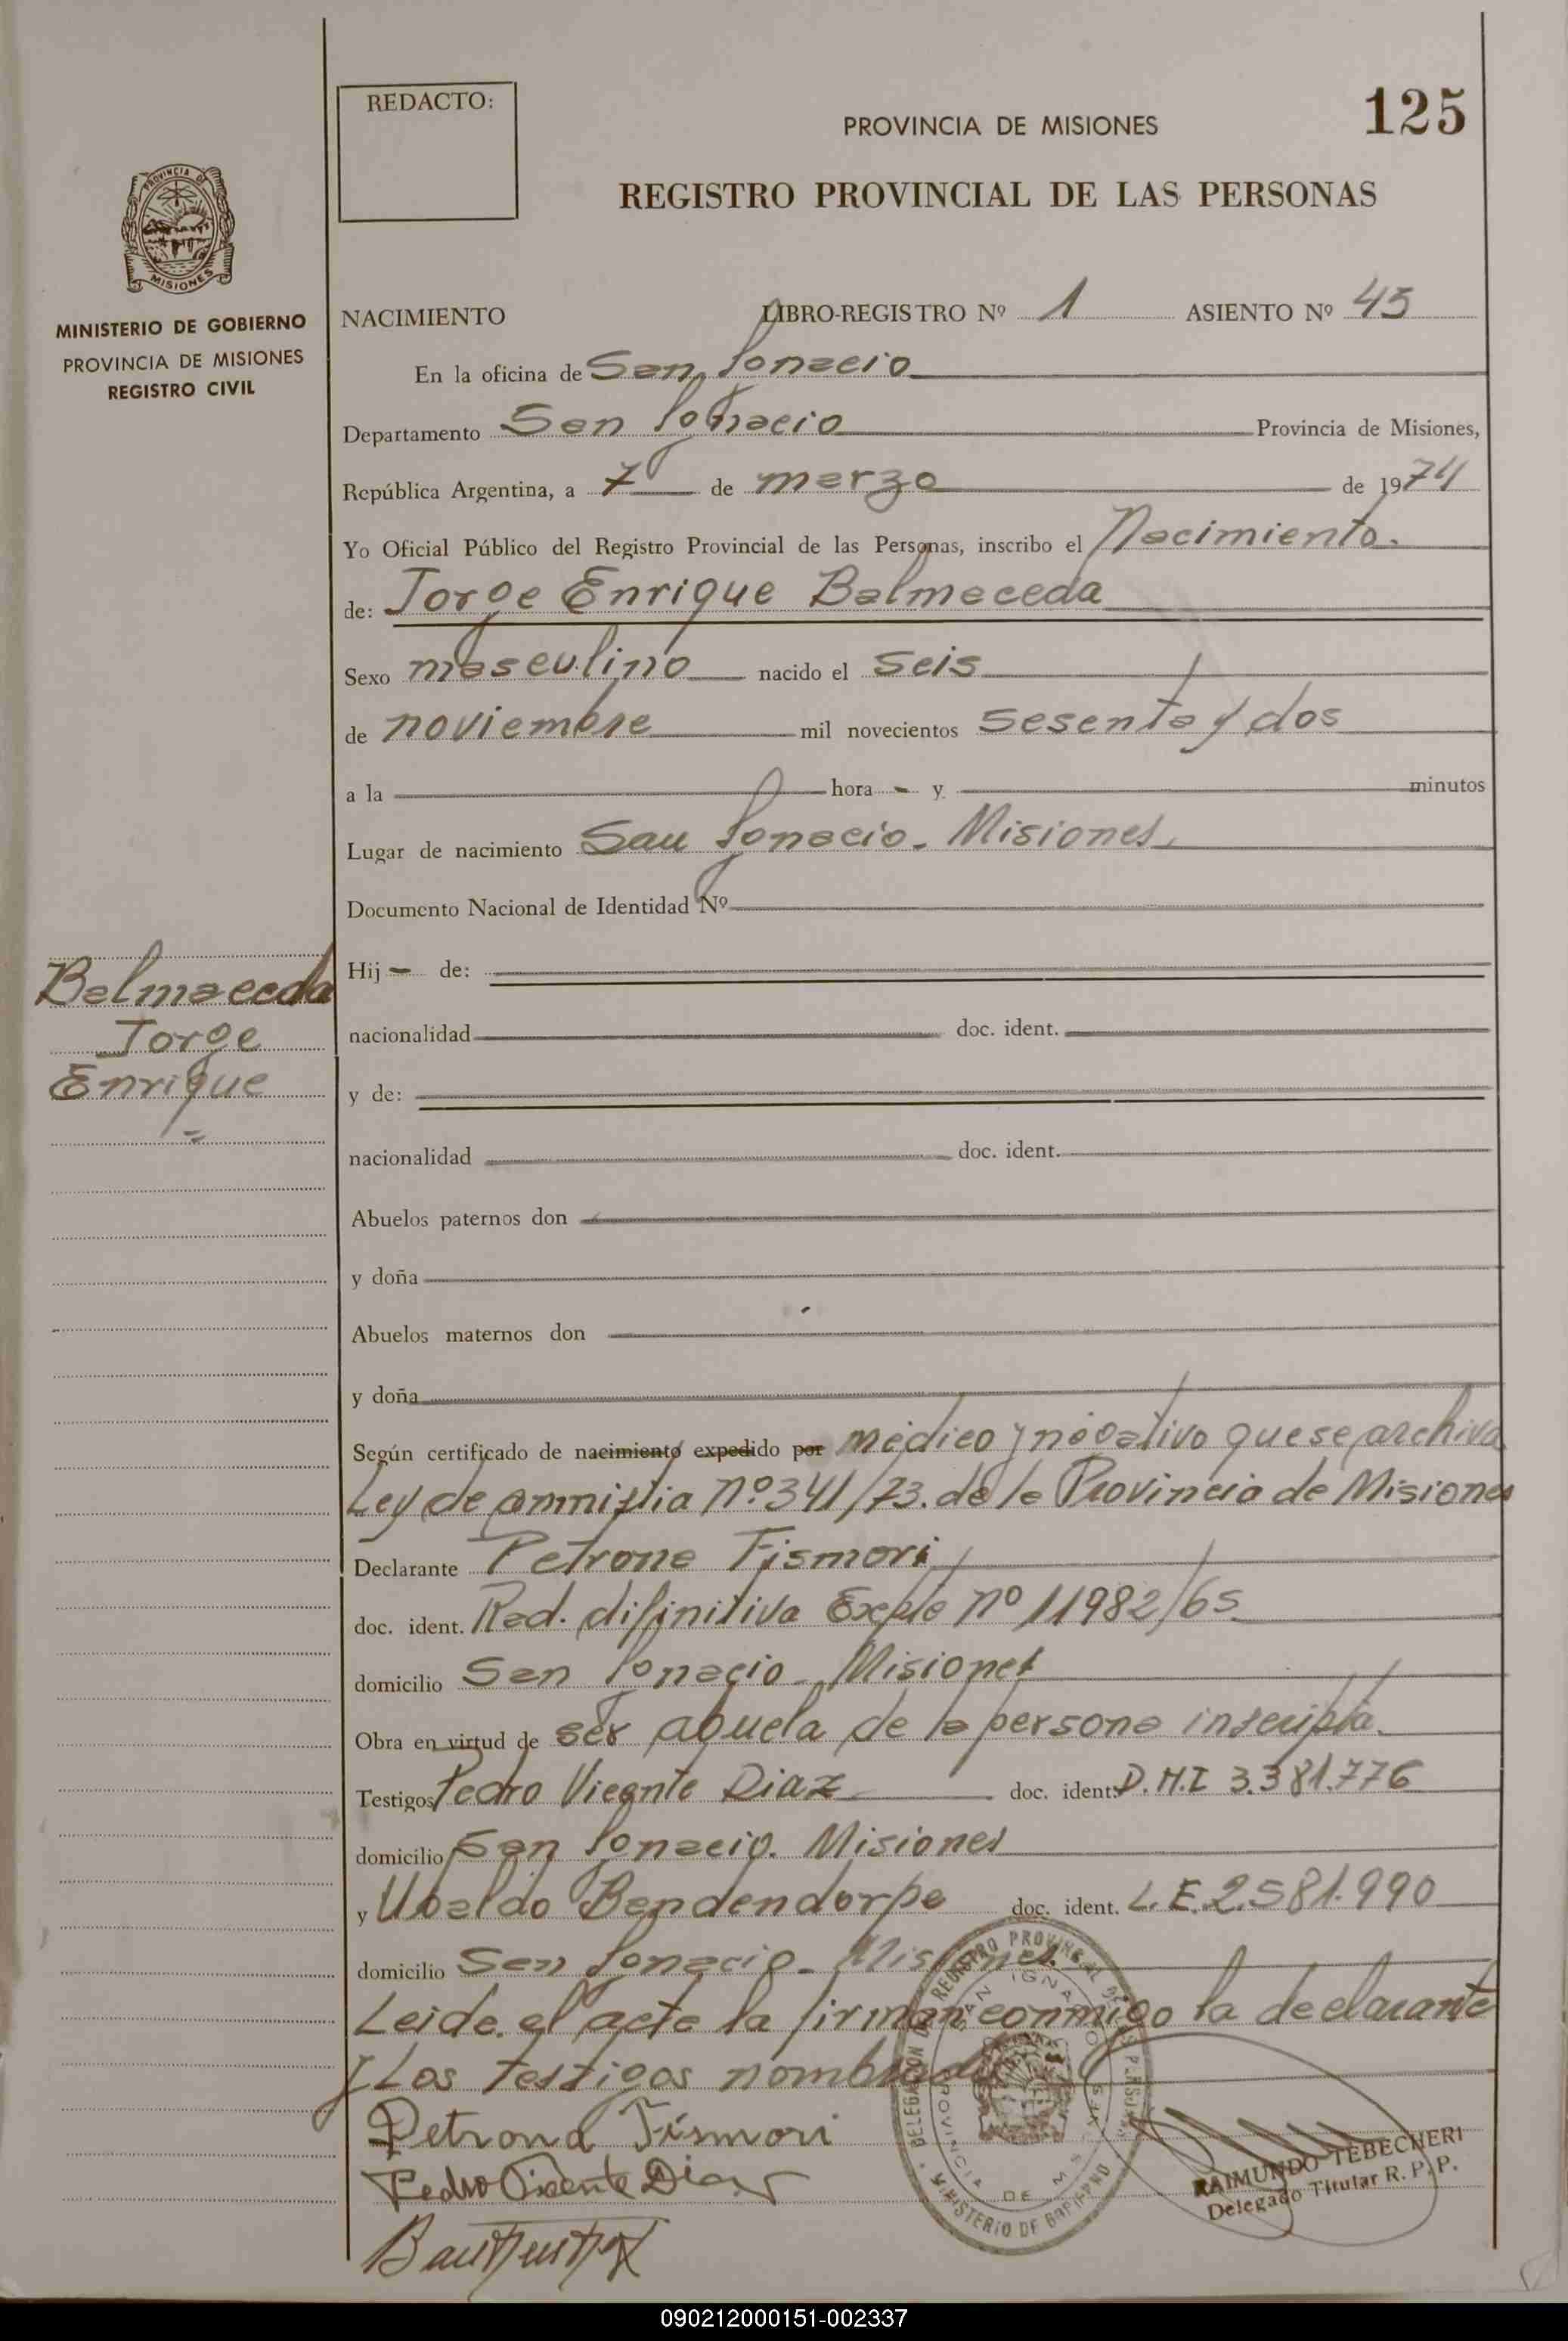 REDACTO:
125
PROVINCIA DE MISIONES
REGISTRO PROVINCIAL DE LAS PERSONAS
PROVINCIA DE
MISIONES
MINISTERIO DE GOBIERNO
PROVINCIA DE MISIONES
REGISTRO CIVIL
NACIMIENTO LIBRO-REGISTRO Nº 1 ASIENTO Nº 45
En la oficina de San Ignacio
Departamento San Ignacio Provincia de Misiones,
República Argentina, a 7 de marzo de 1974
Yo Oficial Público del Registro Provincial de las Personas, inscribo el Nacimiento.
de: Jorge Enrique Balmaceda
Sexo masculino nacido el seis
de noviembre mil novecientos sesenta y dos
a la hora - y minutos
Lugar de nacimiento San Ignacio. Misiones
Documento Nacional de Identidad Nº
Balmaceda
Jorge
Enrique
Hij - de:
nacionalidad doc. ident.
y de:
nacionalidad doc. ident.
Abuelos paternos don
y doña
Abuelos maternos don
y doña
Según certificado de nacimiento expedido por médico y negativo que se archiva
Ley de amnistia nº 341/73. de la Provincia de Misiones
Declarante Petrona Fismori
doc. ident. Rad. difinitiva Expte nº 11982/65
domicilio San Ignacio. Misiones
Obra en virtud de ser abuela de la persona inscripta.
Testigos Pedro Vicente Diaz doc. ident. D.M.I 3.381.776
domicilio San Ignacio. Misiones
y Ubaldo Bendendorpe doc. ident. L.E. 2.581.990
domicilio San Ignacio. Misiones.
Leida el acta la firman conmigo la declarante
y Los testigos nombrados
Petrona Fismori
Pedro Vicente Diaz
DELEGACION DE REGISTRO PROVINCIAL DE LAS PERSONAS
SAN IGNACIO
PROVINCIA DE MISIONES
MINISTERIO DE GOBIERNO
RAIMUNDO TEBECHERI
Delegado Titular R. P. P.
090212000151-002337